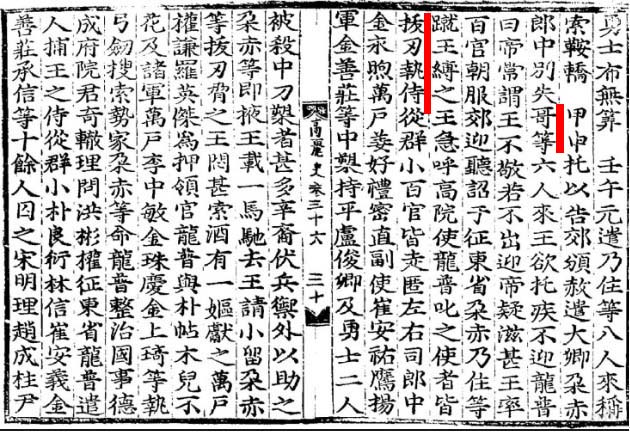 勇士布無算　壬午元遣乃住等八人來稱
索鞍轎　甲申托以告郊頒赦遣大卿朶赤
郎中別失哥等六人來王欲托疾不迎龍普
曰帝常謂王不敬若不出迎帝疑滋甚王率
百官朝服郊迎聽詔于征東省朶赤乃住等
蹴王縛之王急呼高院使龍普叱之使者皆
拔刃執侍從群小百官皆走匿左右司郎中
金永煦萬戶姜好禮密直副使崔安祐鷹揚
軍金善莊等中槊持平盧俊卿及勇士二人
高麗史卷三十六　三十
被殺中刀槊者甚多辛裔伏兵禦外以助之
朶赤等即掖王載一馬馳去王請小留朶赤
等拔刃脅之王悶甚索酒有一嫗獻之萬戶
權謙羅英傑爲押領官龍普與朴帖木兒不
花及諸軍萬戶李中敏金珠慶金上琦等執
弓劒搜索勢家朶赤等命龍普整治國事德
成府院君奇轍理問洪彬權征東省龍普遣
人捕王之侍從群小朴良衍林信崔安義金
善莊承信等十餘人囚之宋明理趙成柱尹